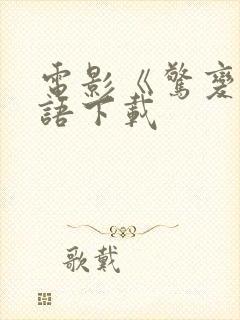 電影《驚
語下載
歌戴